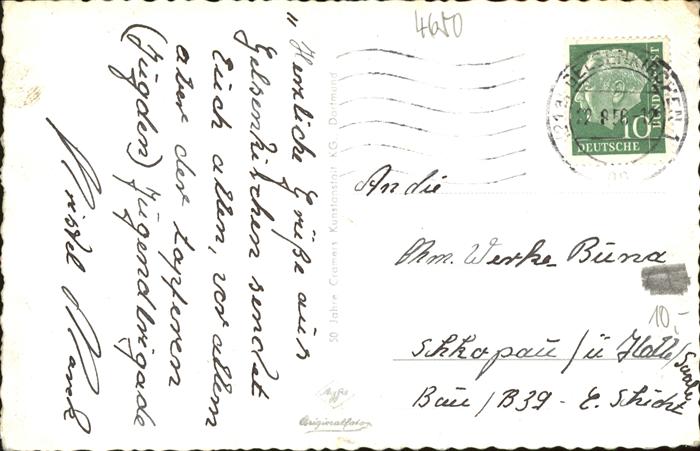 4650
„Herzliche Grüße aus
Gelsenkirchen sendet
Euch allen, vor allem
aber der tapferen
(Jugden) Jugendbrigade
50 Jahre Cramers Kunstanstalt KG. Dortmund
Agfa
Originalfoto
GELSENKIRCHEN
10
DEUTSCHE
BUNDESPOST
An die
Chm. Werke Buna
10,-
Schkopau / ü Halle / Saale
Bau / B39 - E. Schicht